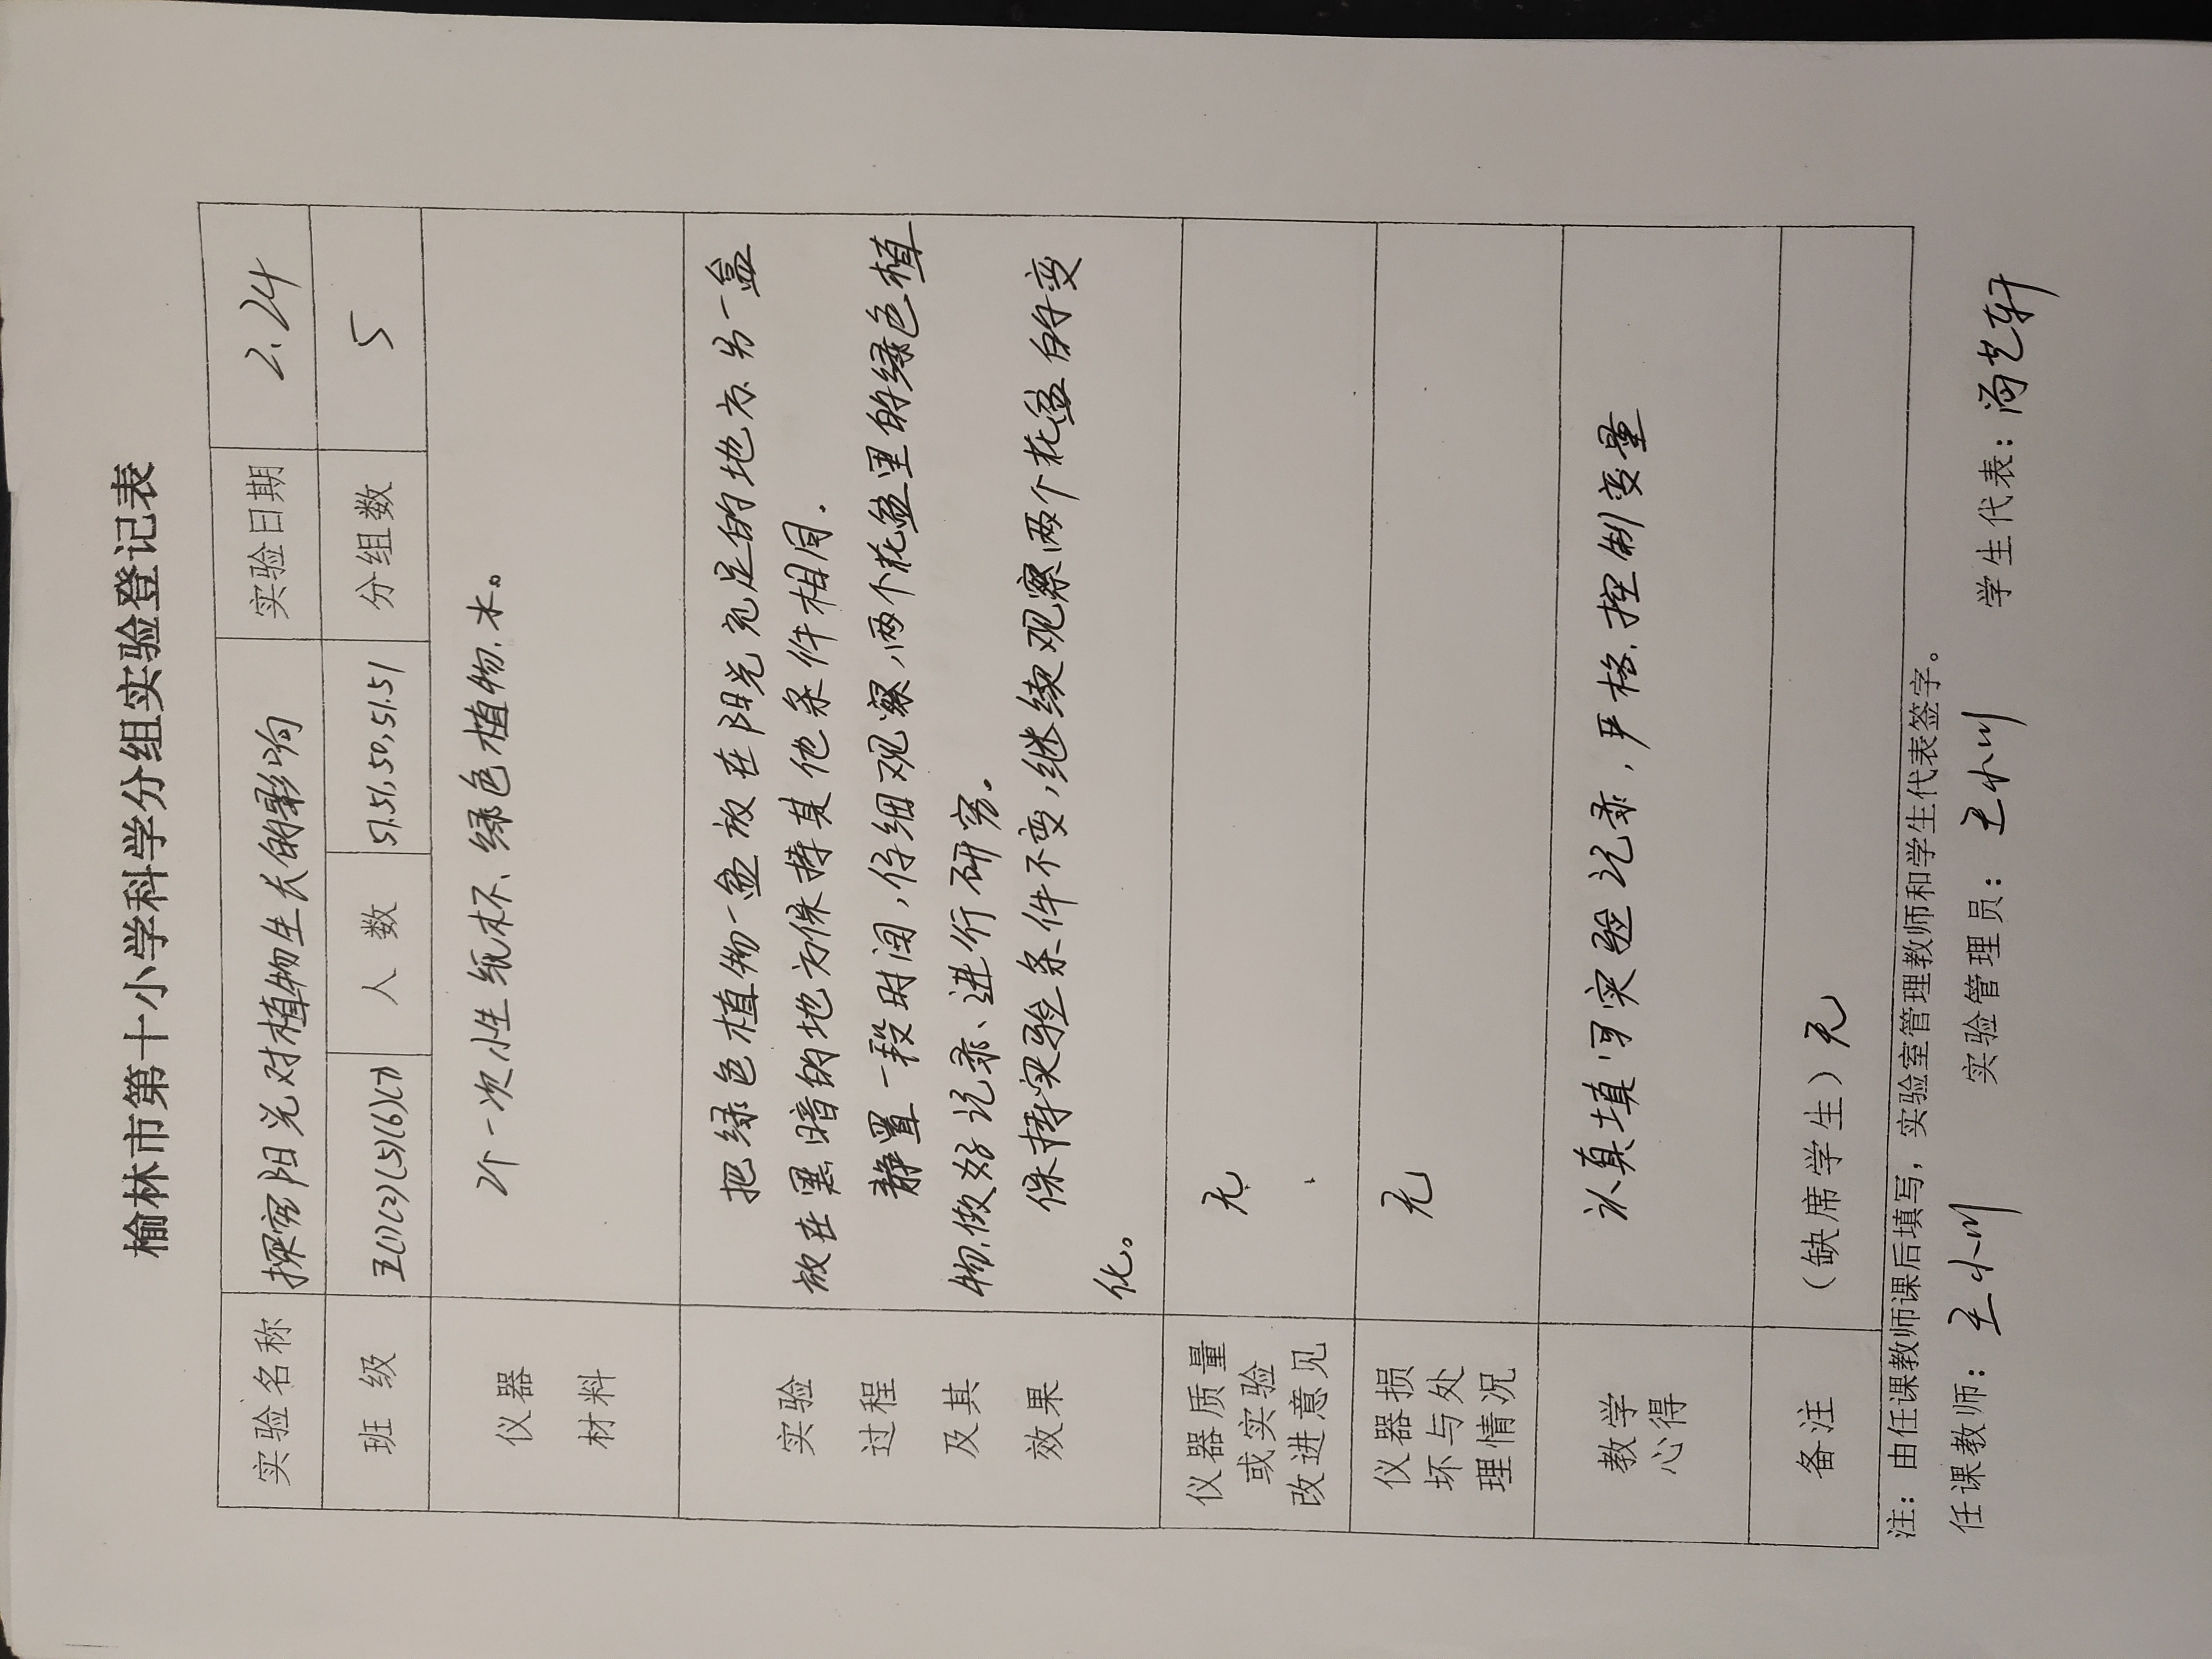 榆林市第十小学科学分组实验登记表
实验名称 探究阳光对植物生长的影响 实验日期 2.24
班 级 五(1)(2)(5)(6)(7) 人 数 51.51,50,51.51 分组数 5
仪器
材料
2个一次性纸杯、绿色植物、水。
实验
过程
及其
效果
把绿色植物一盆放在阳光充足的地方、另一盒
放在黑暗的地方保持其他条件相同.
静置一段时间,仔细观察,两个花盆里的绿色植
物,做好记录、进行研究。
保持实验条件不变,继续观察两个花盆的变
化。
仪器质量
或实验
改进意见
无
仪器损
坏与处
理情况
无
教学
心得
认真填写实验记录,严格控制变量
备注 (缺席学生)无
注：由任课教师课后填写，实验室管理教师和学生代表签字。
任课教师： 王小川 实验管理员： 王小川 学生代表：艺轩